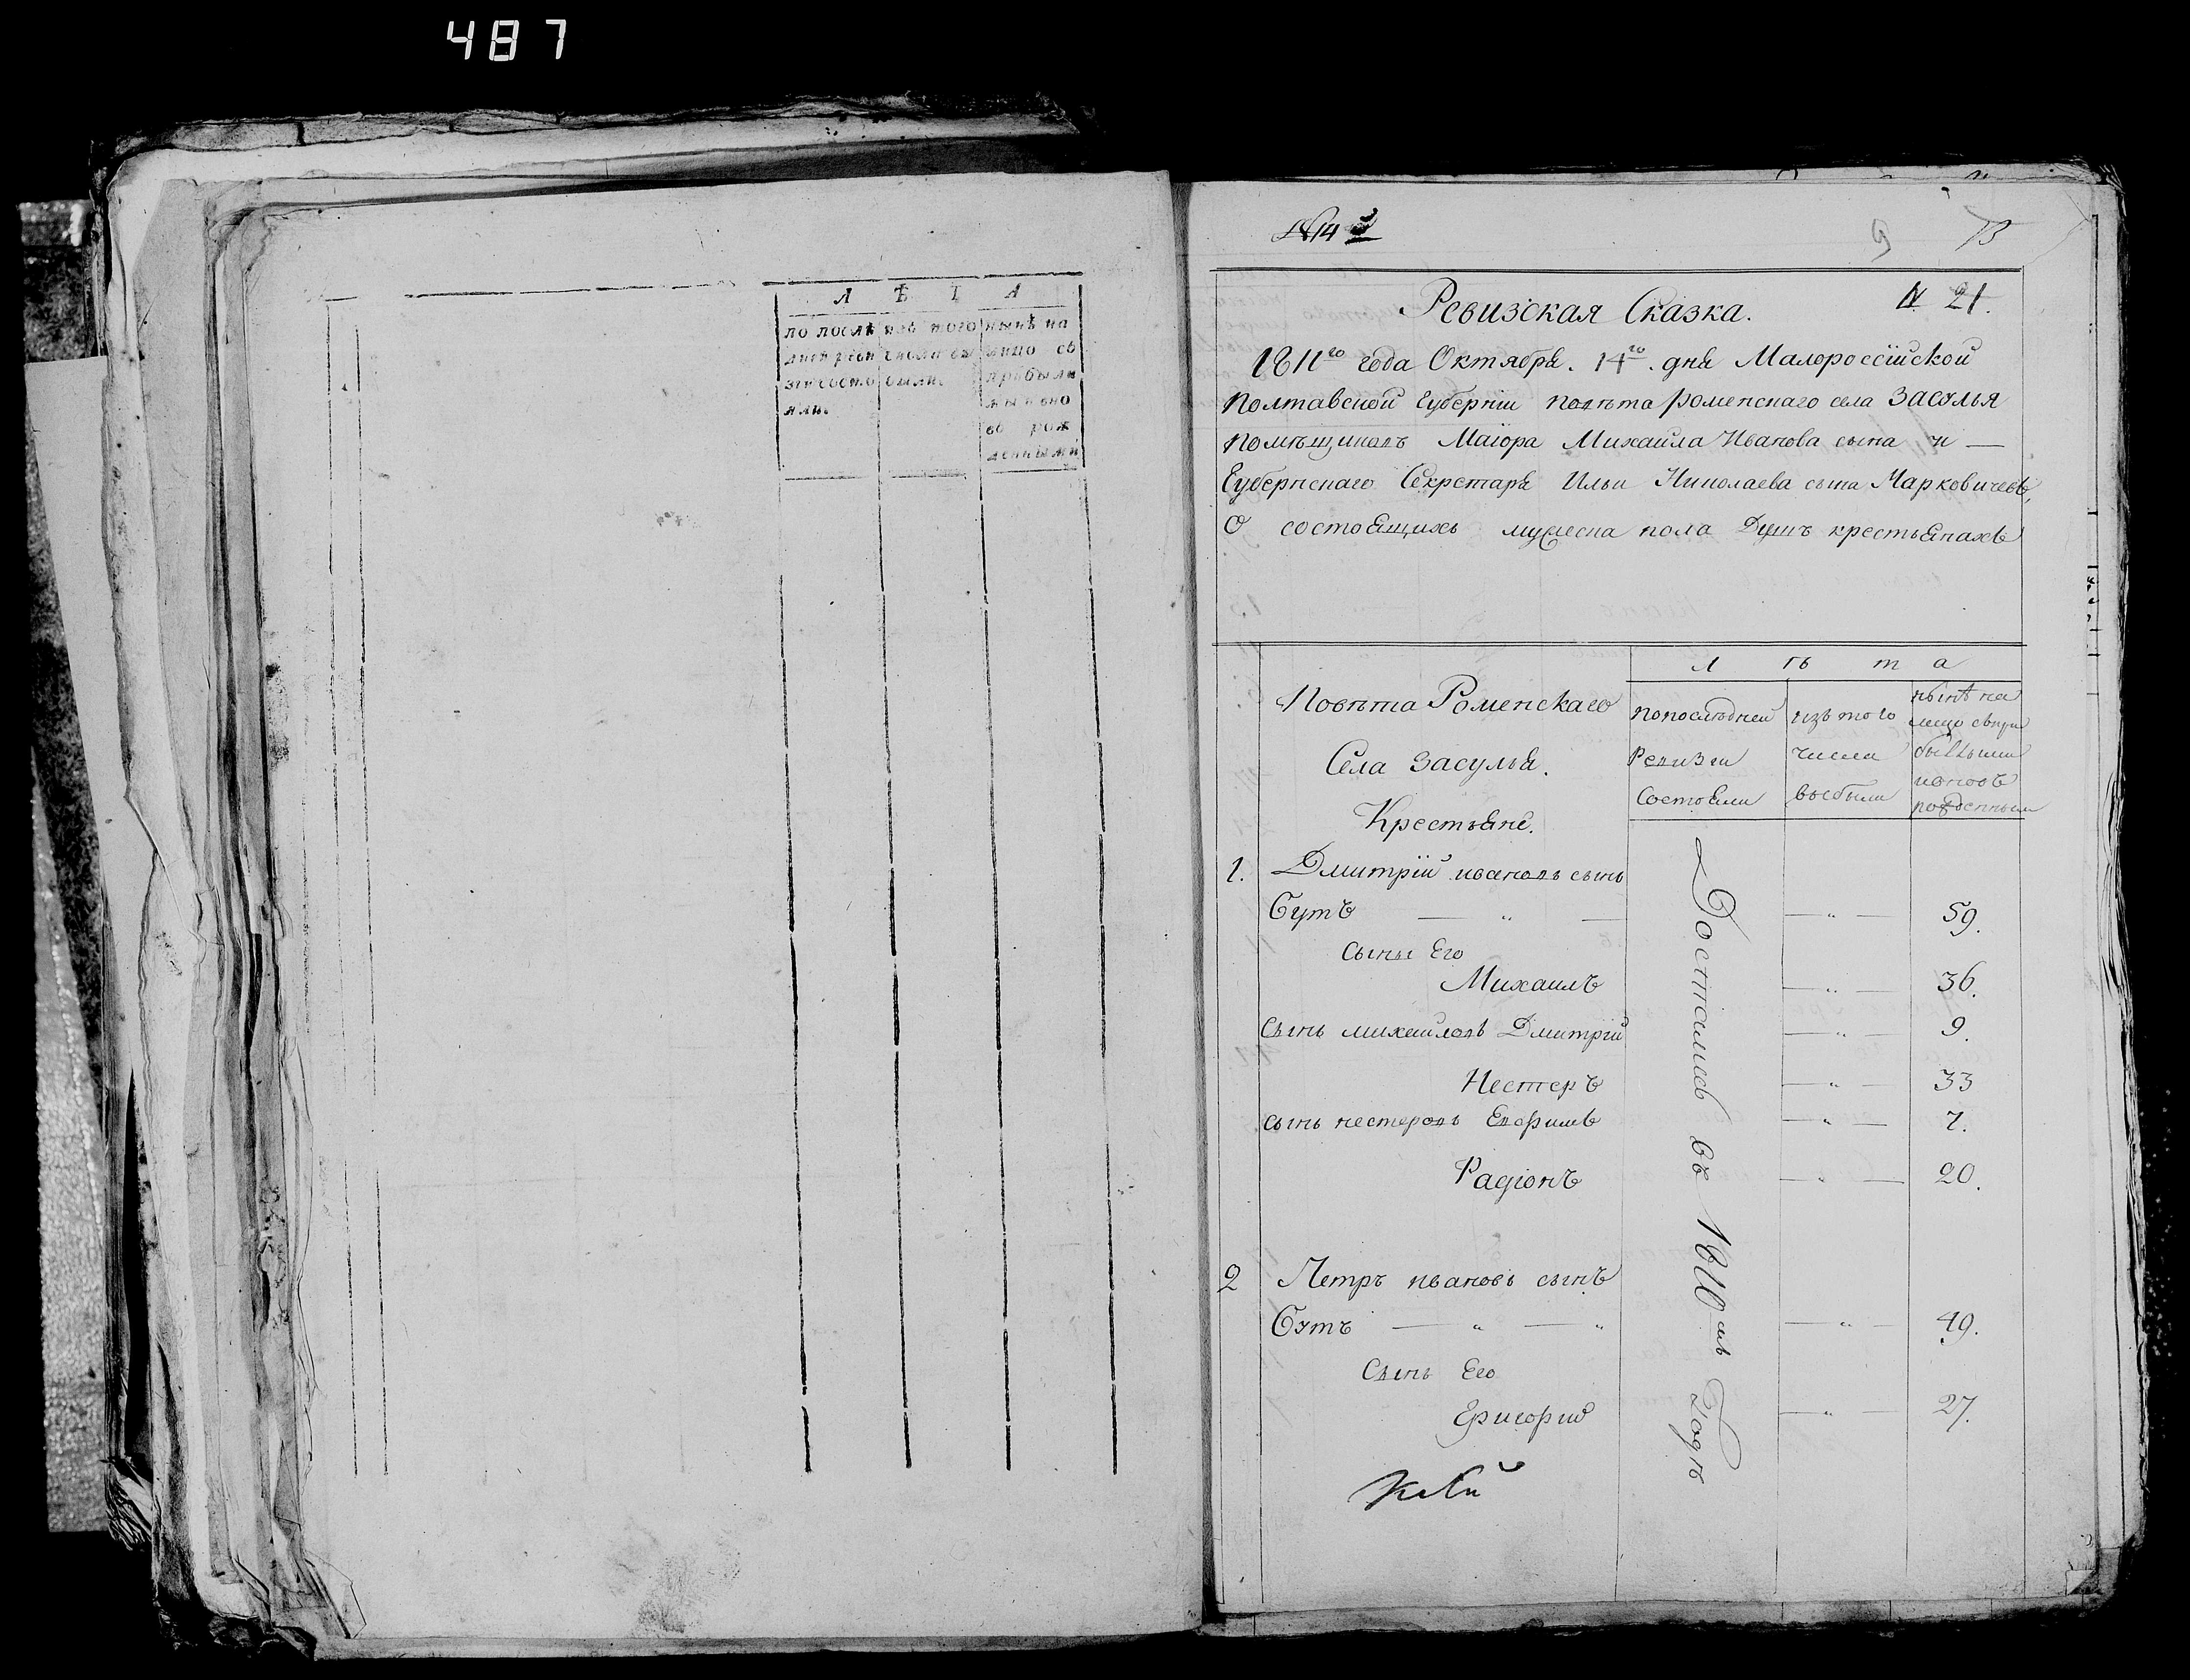 487
Л Ѣ Т А
по послѣ
дней реви
зіи состо
яли.
изъ того
числа вы
были.
нынѣ на
лицо съ
прибылы
ми и вно
вь рож
денными
№ 14й
9
Ревизская Сказка.
N. 21.
1811го года Октября. 14го. дня Малороссїйской
Полтавской Губернїи повѣта роменского села Засулья
помѣщиковъ Маїора Михаила Иванова сына и —
Губернскаго Секретаря Ильи Николаева сына Марковичевъ,
О состоящихъ мужеска пола Душъ крестьянахъ
Повѣта Роменскаго
Села Засулья.
Крестьяне.
Л ѣ т а
попослѣдней
Ревизіи
Состояли
изъ того
числа
выбыли
нынѣ на
лицо съпри
былыми
ивновь
рожденными
1. Дмитрїй ивановъ сынъ
Сутъ — „ — — „ — 59.
Сыны Его
Михаилъ — „ — 36.
Сынъ михайловъ Дмитрїй — „ — 9.
Нестеръ — „ — 33
Сынъ нестеровъ Евфимъ — „ — 7.
Радіонъ — „ — 20.
2 Петръ ивановъ сынъ
Сутъ — „ — „ — „ — 49.
Сынъ Его
Григорий — „ — 27.
Досталис въ 1811мъ Годѣ